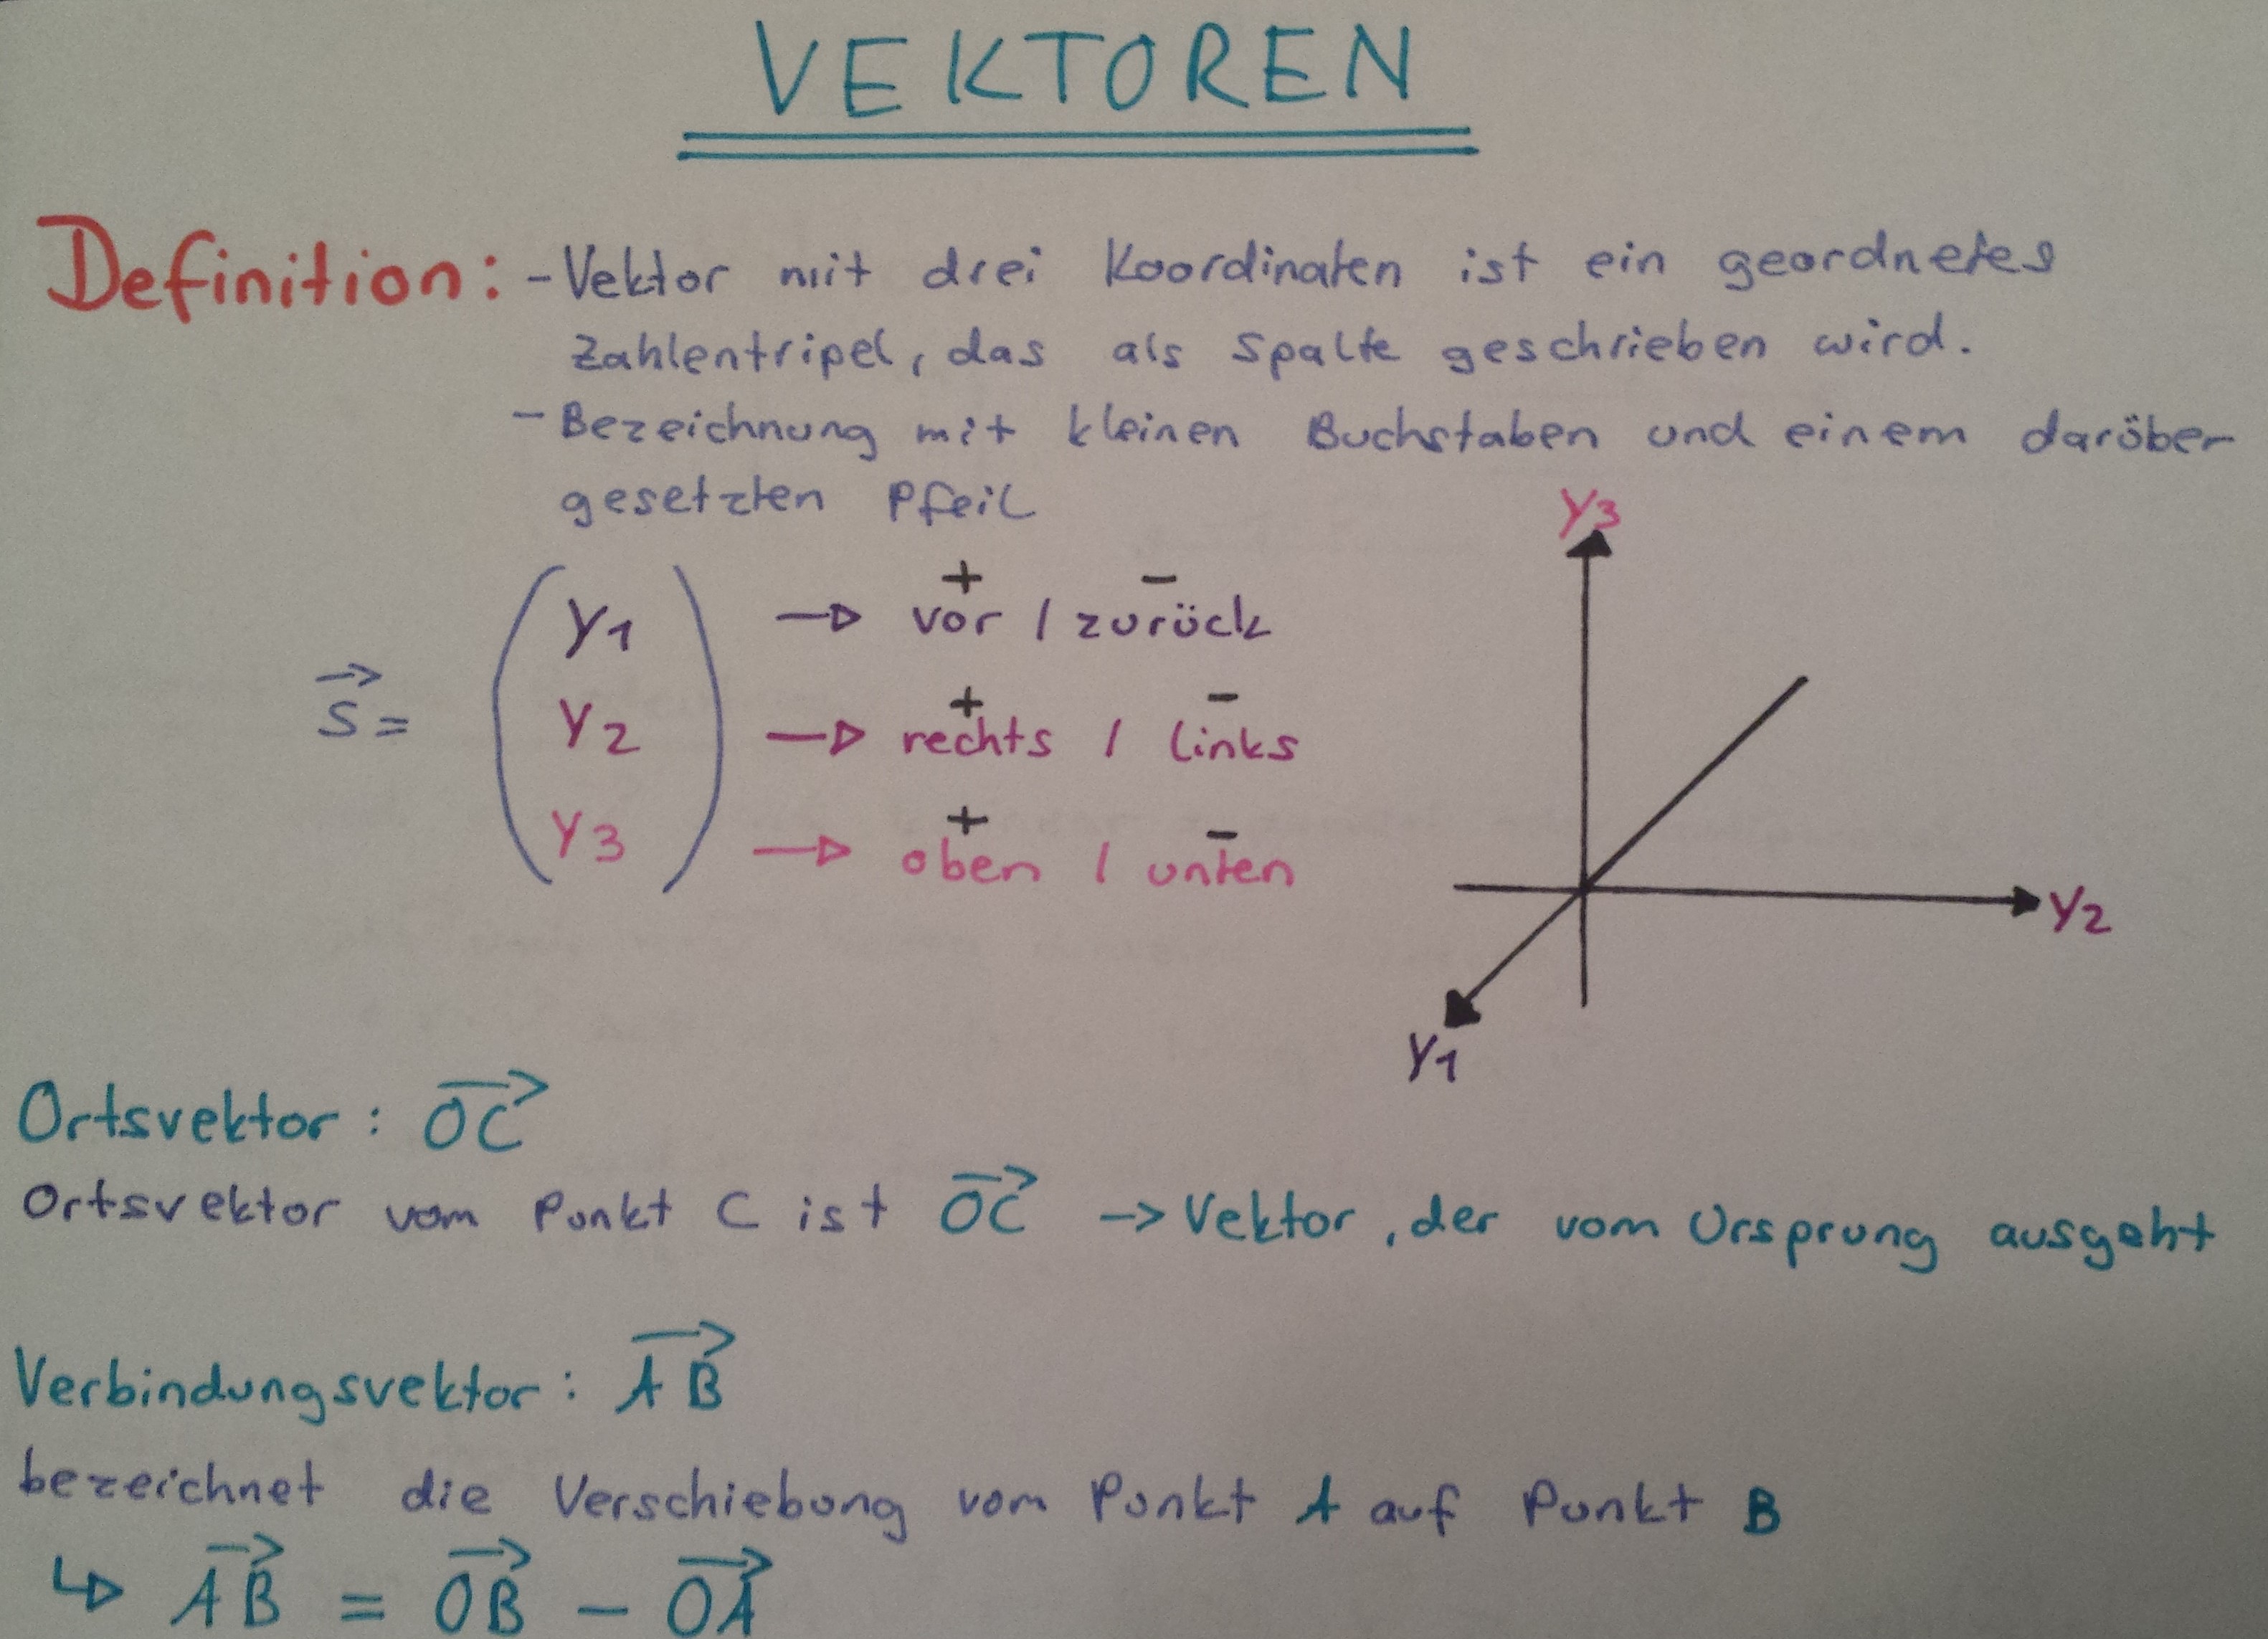 VEKTOREN
Definition: - Vektor mit drei Koordinaten ist ein geordnetes
Zahlentripel, das als Spalte geschrieben wird.
- Bezeichnung mit kleinen Buchstaben und einem darüber
gesetzten Pfeil
y3
+ −
y1 → vor / zurück
s⃗ =
+ −
y2 → rechts / links
+ −
y3 → oben / unten
y2
y1
Ortsvektor: O⃗C⃗
Ortsvektor vom Punkt C ist O⃗C⃗ -> Vektor, der vom Ursprung ausgeht
Verbindungsvektor: A⃗B⃗
bezeichnet die Verschiebung vom Punkt A auf Punkt B
↳ A⃗B⃗ = O⃗B⃗ − O⃗A⃗